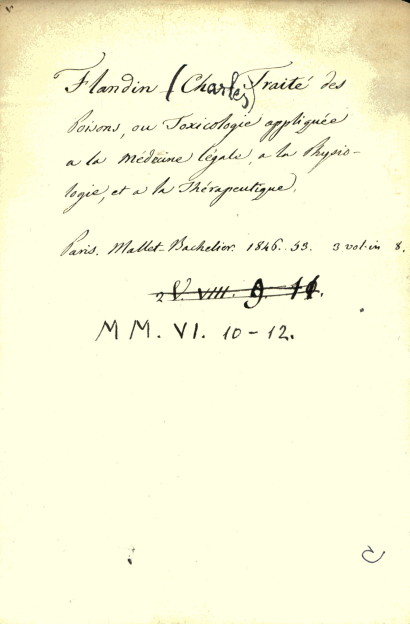 Flandin (Charles) Traité des
Poisons, ou Toxicologie appliquée
a la Médecine légale, a la Physio-
logie, et a la Thérapeutique.
Paris. Mallet-Bachelier. 1846. 53. 3 vol. in 8.
V. VIII. 9. 11.
MM. VI. 10-12.